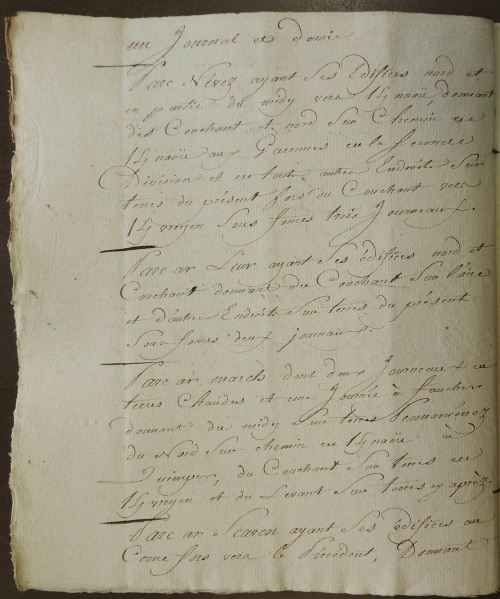 un Journal et demi.
Parc Névez ayant Ses Edifices nord et
en partie du midy vers donnant
des Couchant et nord Sur Chemin de
aux Garennes de la Seconde
Division et de toute autre Endroits Sur
terres du présent fors du Couchant vers
Sous fonces trois Journeaux.
Parc ar Leur ayant Ses édifices nord et
Couchant donnant du Couchant Sur l'aire
et d'autre Endroits Sur terres du présent
Sous fonces deux journaux.
Parc ar march dont deux Journeaux de
terres Chaudes et une Journée à faucher
donnant du midy Sur terres
du Nord Sur chemin de à
Quimper, du Couchant Sur terres de
et du Levant Sur terres cy après.
Parc ar Scaven ayant Ses édifices au
Cerne fors vers le Précédent, Donnant